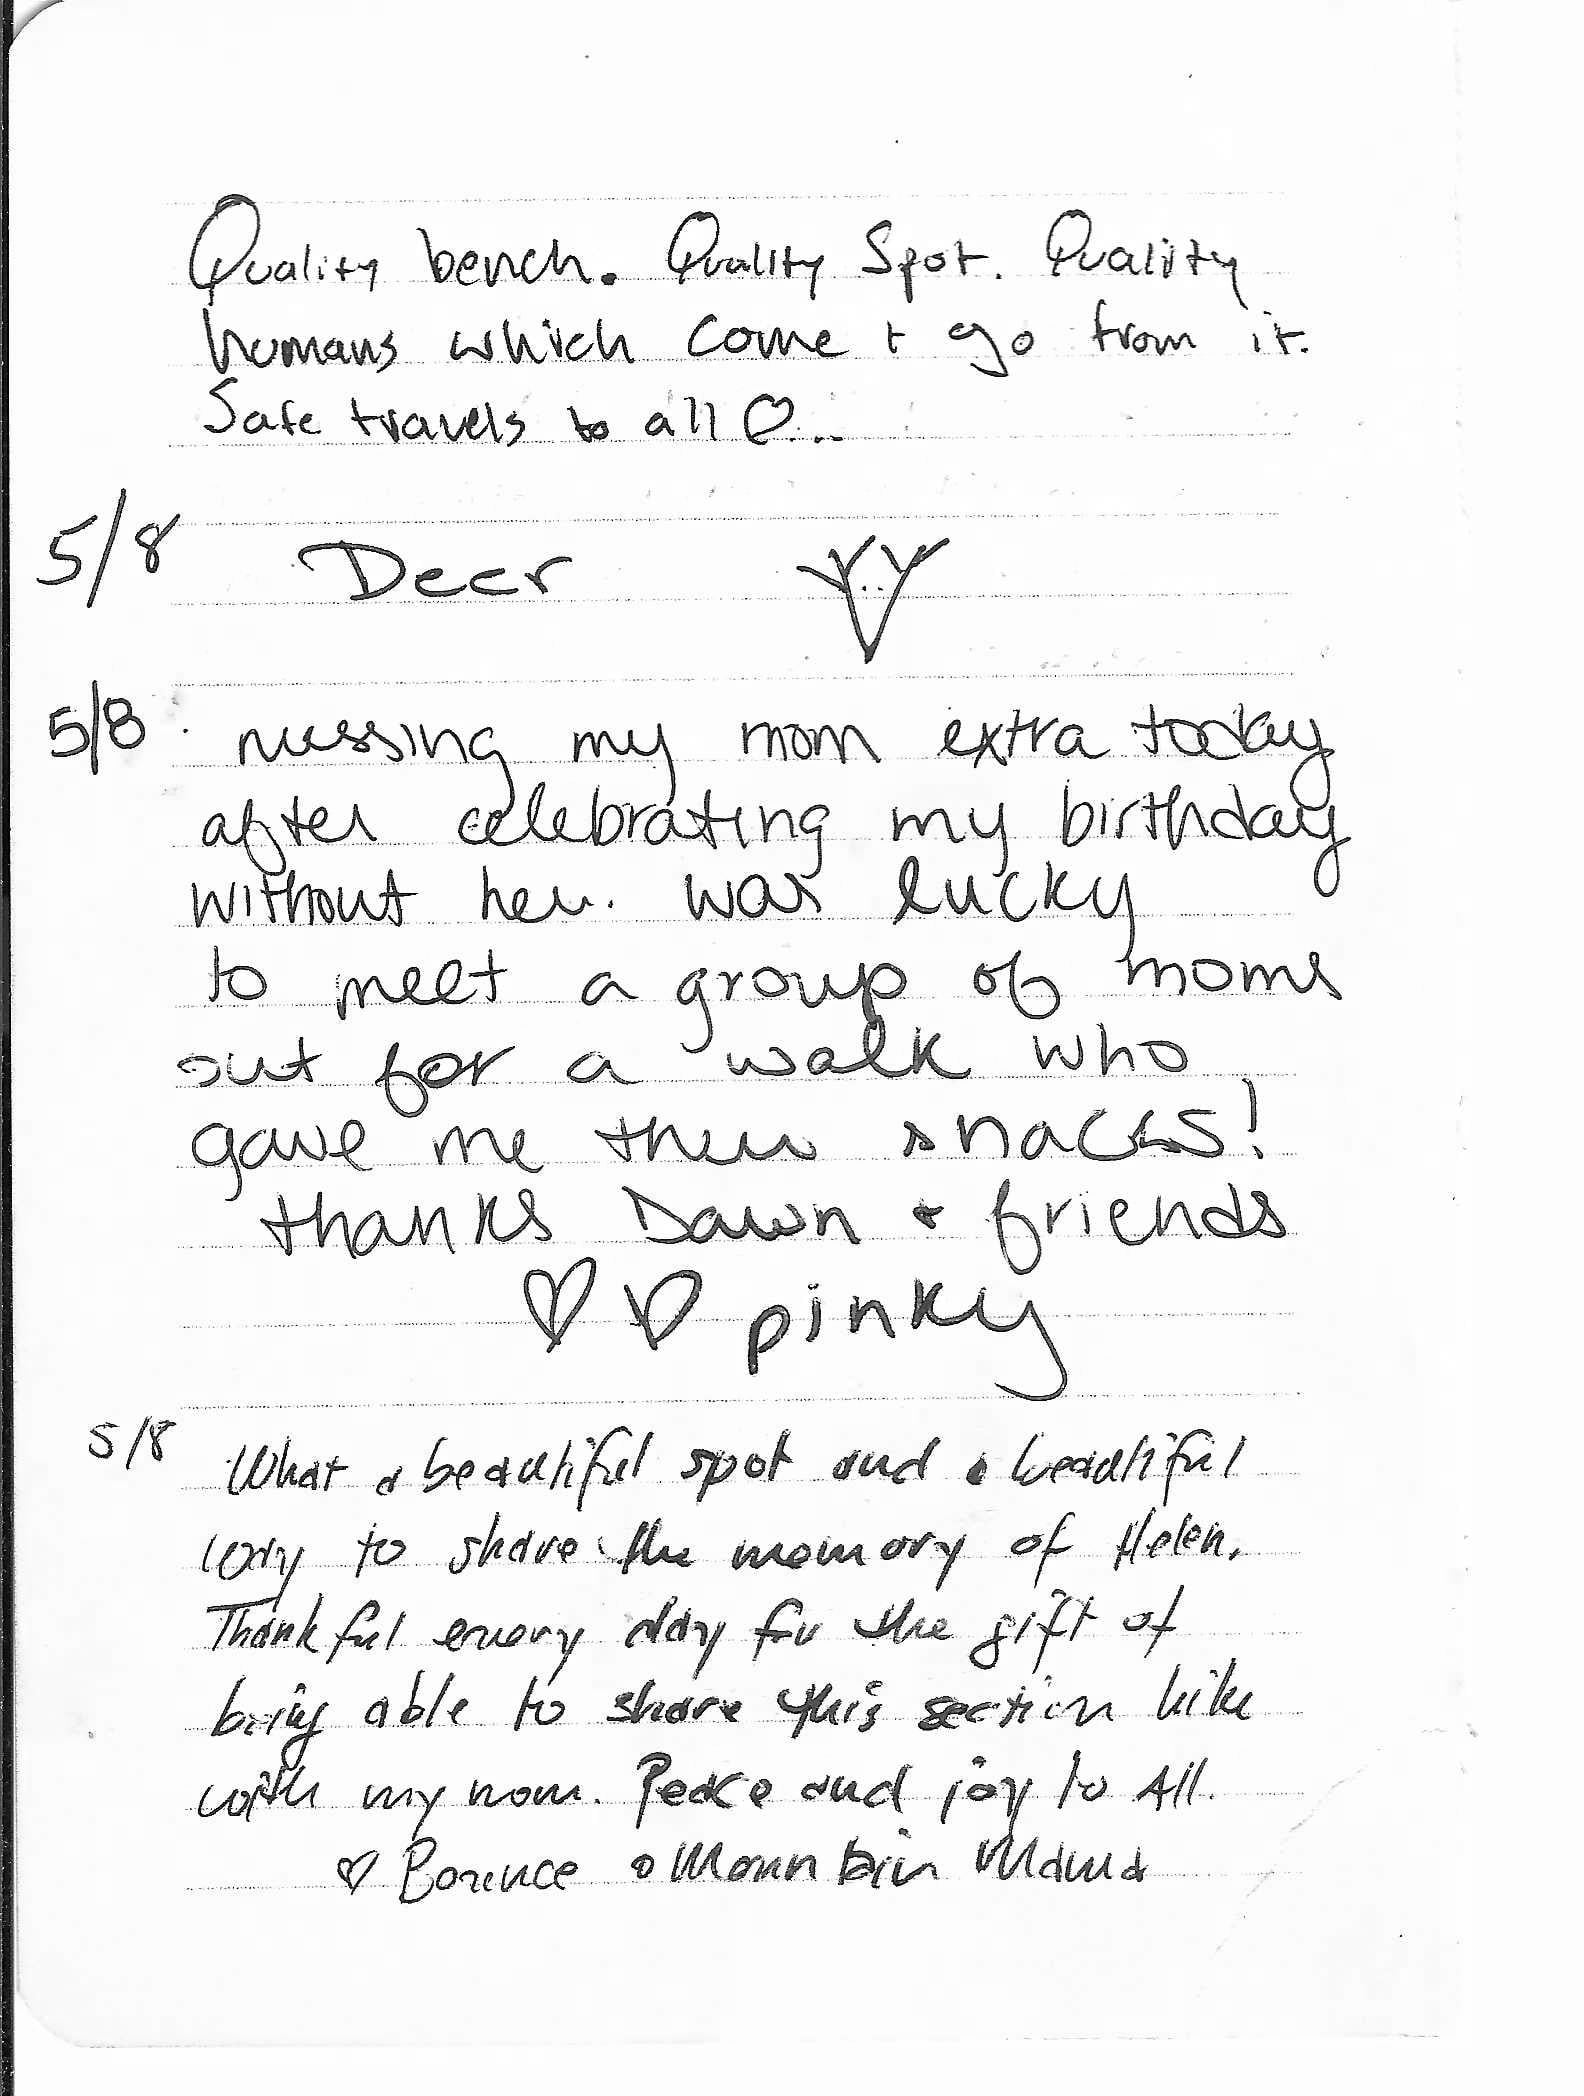 Quality bench. Quality Spot. Quality
humans which come + go from it.
Safe travels to all ♡...
5/8 Deer
5/8 missing my mom extra today
after celebrating my birthday
without her. was lucky
to meet a group of moms
out for a walk who
gave me their snacks!
thanks Dawn + friends
♡♡ pinky
5/8 What a beautiful spot and a beautiful
way to share the memory of Helen.
Thankful every day for the gift of
being able to share this section hike
with my mom. Peace and joy to All.
♡ Mountain Mama